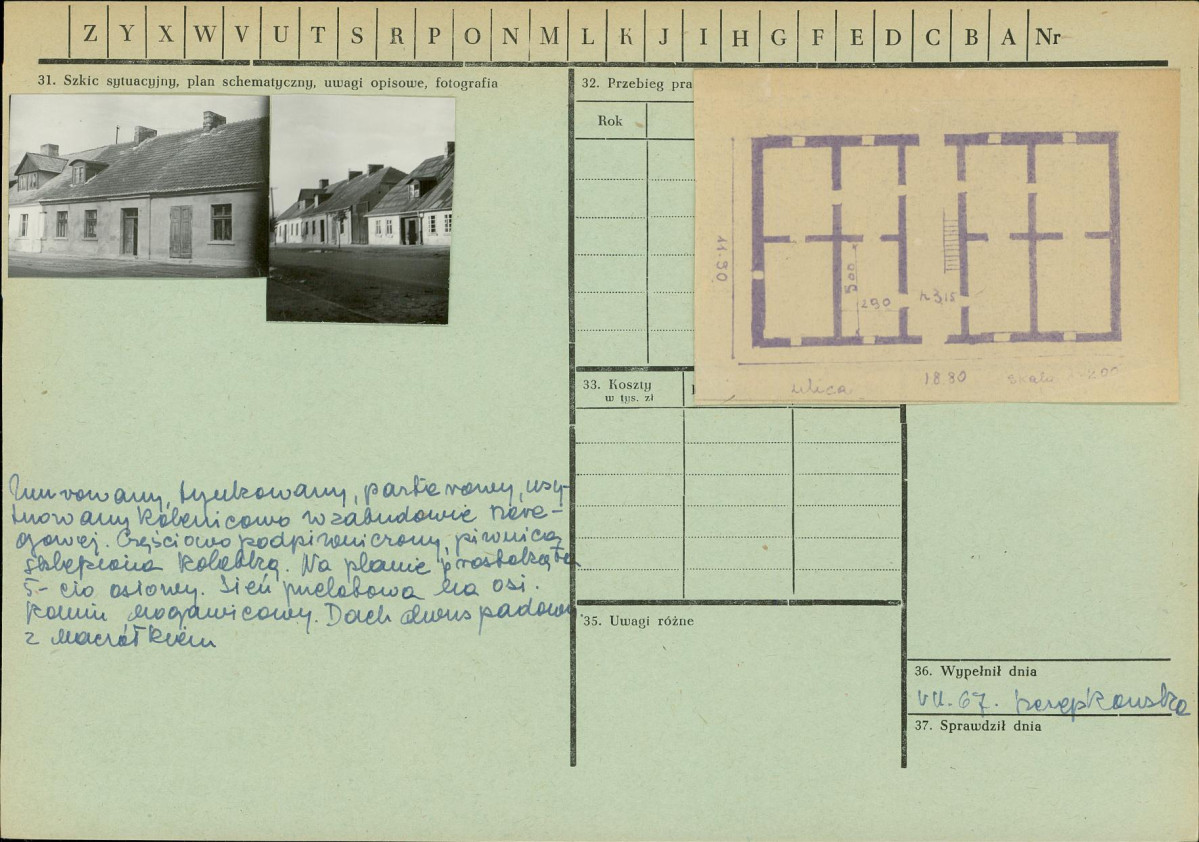 Z Y X W V U T S R P O N M L K J I H G F E D C B A Nr
31. Szkic sytuacyjny, plan schematyczny, uwagi opisowe, fotografia
32. Przebieg pra
Rok
11.30
500
290
ulica
18.80
skala
33. Koszty
w tys. zł
Murowany, tynkowany, parterowy, usy-
tuowany kalenicowo w zabudowie szere-
gowej. Częściowo podpiwniczony, piwnica
sklepiona kolebką. Na planie prostokąta
5-cio osiowy. Sień przelotowa na osi.
Komin nogawicowy. Dach dwuspadowy
z naczółkiem
35. Uwagi różne
36. Wypełnił dnia
VII. 67.
37. Sprawdził dnia